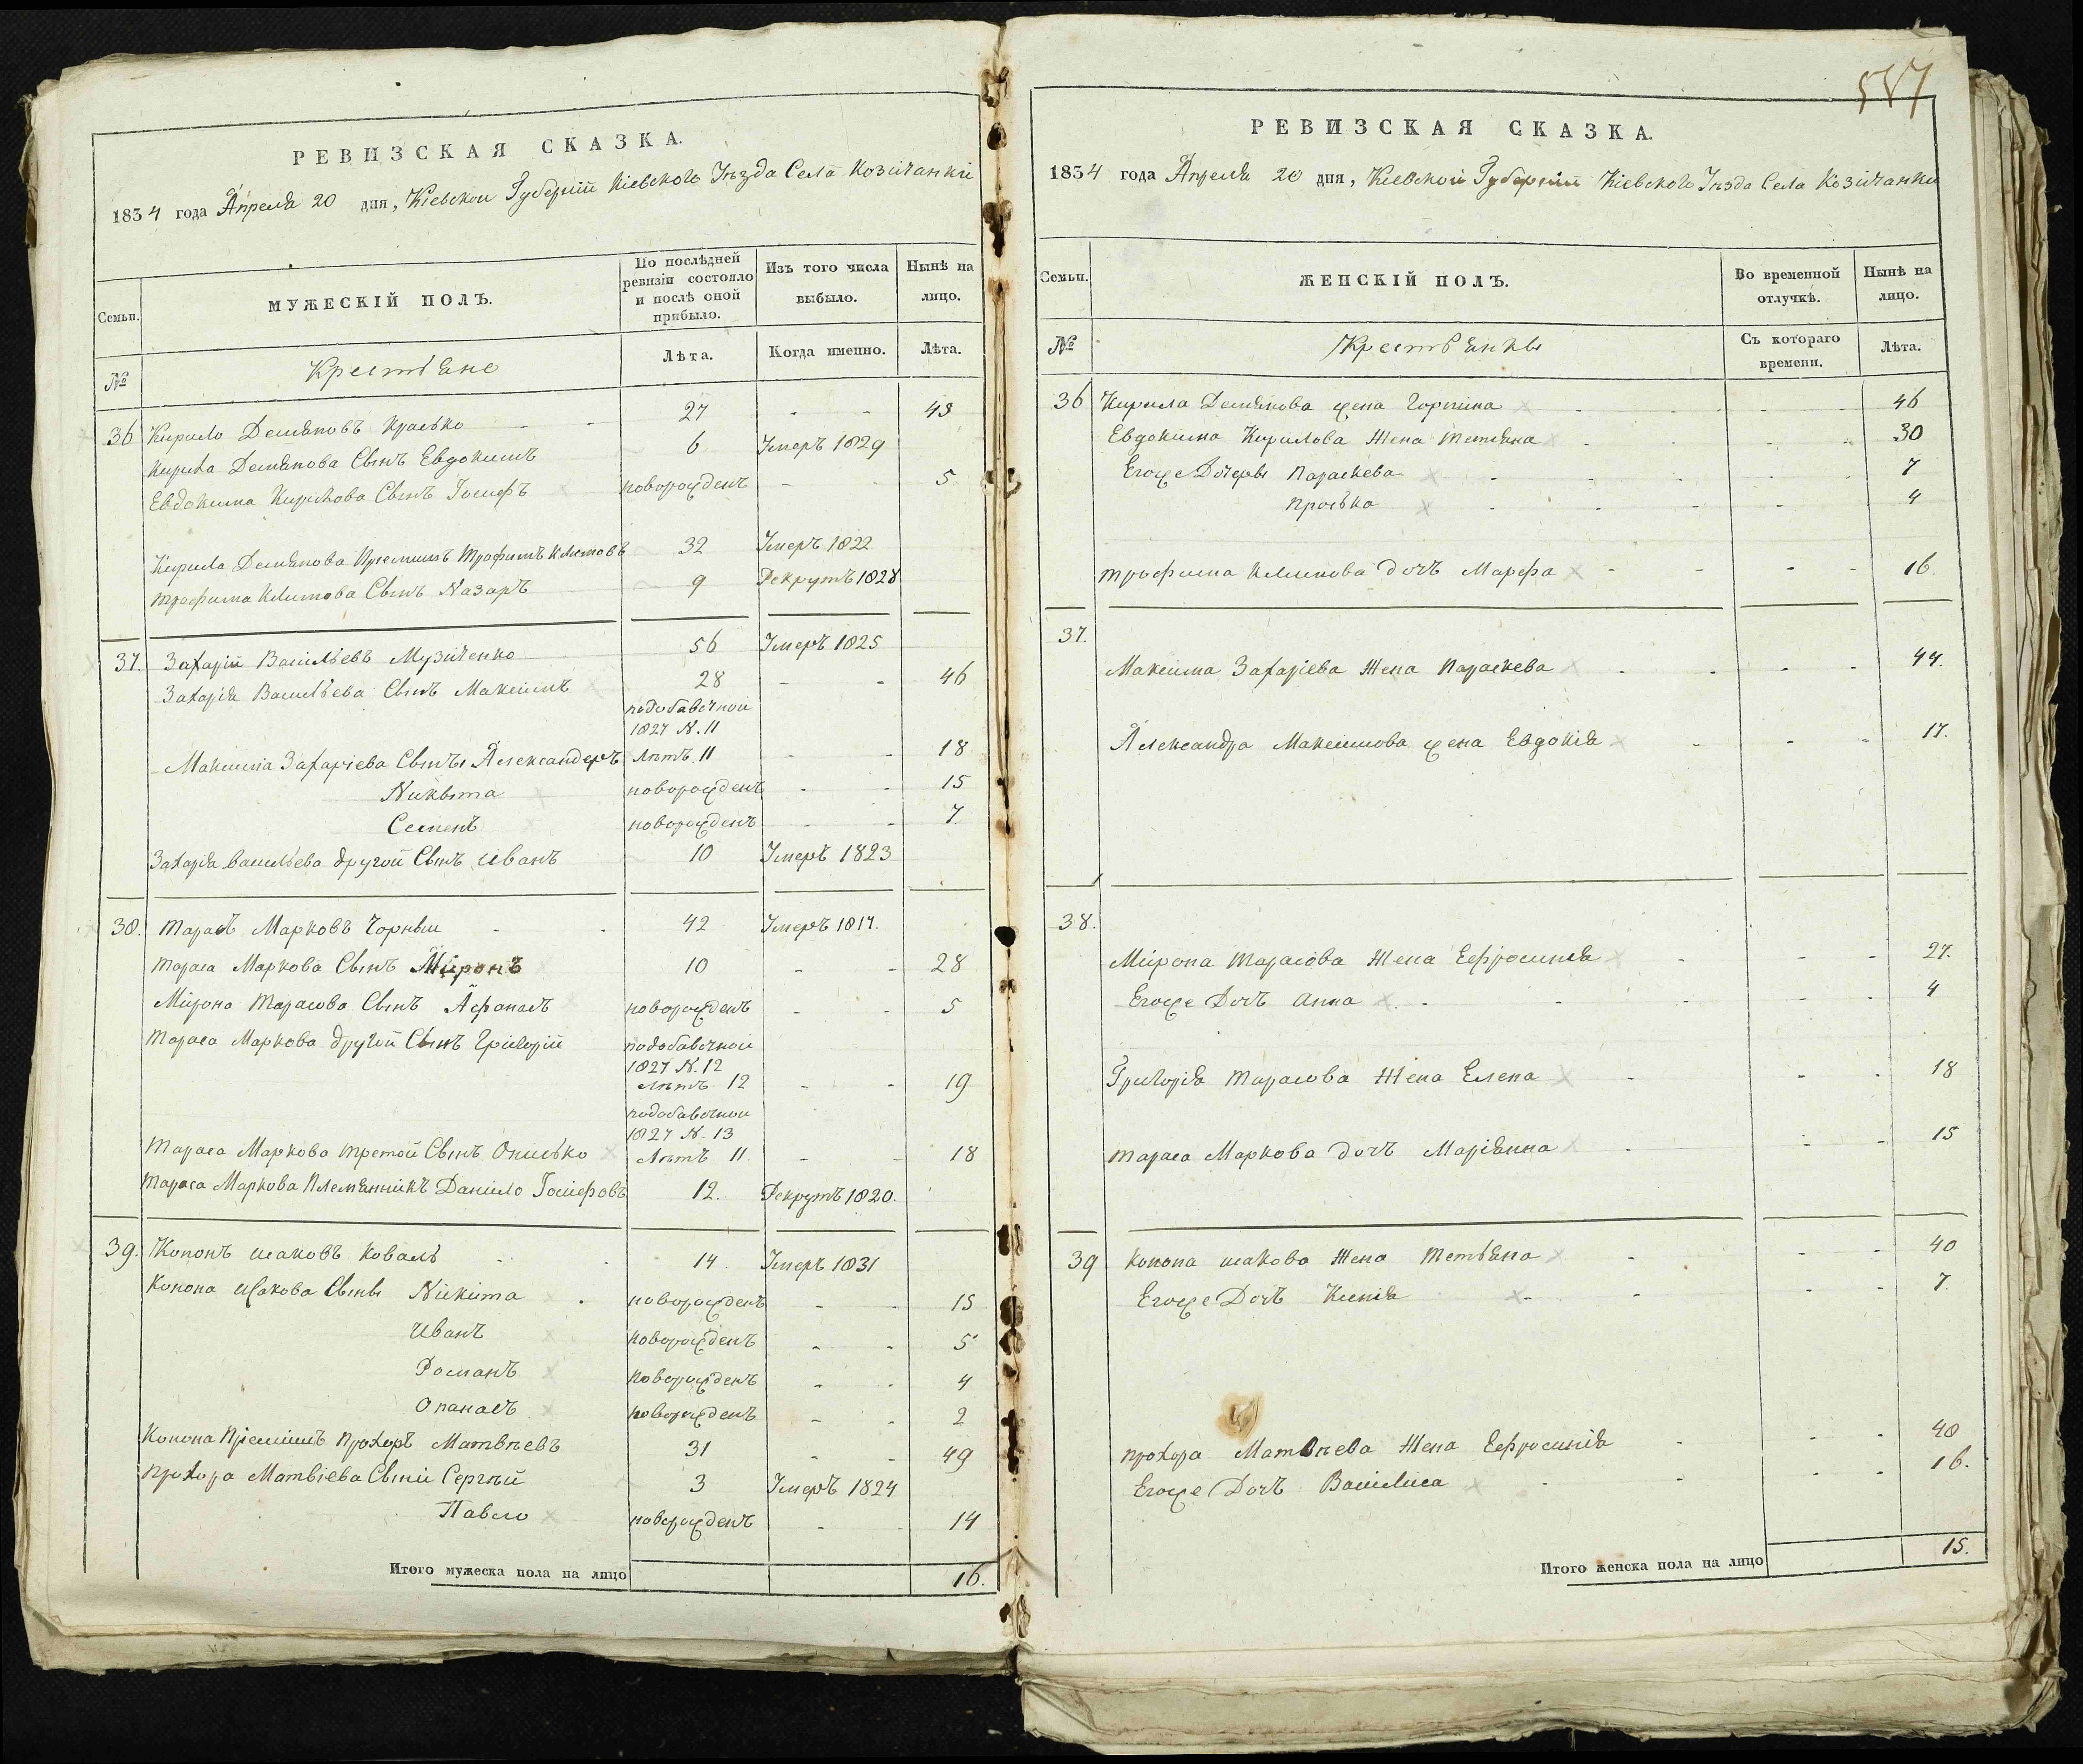 РЕВИЗСКАЯ СКАЗКА.
1834 года Апреля 20 дня, Кіевскои Губерніи Кіевского Уѣзда Села Козичанки
Семьи.
МУЖЕСКІЙ ПОЛЪ.
По послѣдней ревизіи состояло и послѣ оной прибыло.
Изъ того числа выбыло.
Нынѣ на лицо.
№
Крестьяне
Лѣта.
Когда именно.
Лѣта.
36 Кирило Демяновъ 27 - - 43
Кирила Демянова Сынъ Евдокимъ 6 Умеръ 1829
Евдокима Кирилова Сынъ Іосифъ новорожденъ - - 5
Кирила Демянова Пріемишъ Трофимъ Климовъ 32 Умеръ 1822
Трофима Климова Сынъ Назаръ 9 Рекрутъ 1828
37. Захарій Васильевъ Музиченко 56 Умеръ 1825
Захарія Васильева Сынъ Максимъ 28 - - 46
подобавочной
1827 N. 11
Максима Захаріева Сынъ Александеръ лѣтъ 11 - - 18
Никыта новорожденъ - - 15
Семенъ новорожденъ - - 7
Захарія Васильева другой Сынъ Иванъ 10 Умеръ 1823
38. Тарасъ Марковъ Чорныи 42 Умеръ 1817.
Тараса Маркова Сынъ Миронъ 10 - - 28
Мирона Тарасова Сынъ Афанасъ новорожденъ - - 5
Тараса Маркова другой Сынъ Григорій подобавочной
1827 N. 12
лѣтъ 12 - - 19
подобавочной
1827 N. 13
Тараса Маркова третой Сынъ Онисько лѣтъ 11 - - 18
Тараса Маркова Племянникъ Данило Іосифовъ 12. Рекрутъ 1820.
39. Кононъ Исаковъ Коваль 14 Умеръ 1831
Конона Исакова Сыны Никита новорожденъ - - 15
Иванъ новорожденъ - - 5
Романъ новорожденъ - - 4
Опанасъ новорожденъ - - 2
Конона Пріемишъ Прохоръ Матвѣевъ 31 - - 49
Прохора Матвіева Сыни Сергѣй 3 Умеръ 1824
Павло новорожденъ - - 14
Итого мужеска пола на лицо 16.
РЕВИЗСКАЯ СКАЗКА.
1834 года Апреля 20 дня, Кіевской Губерніи Кіевского Уѣзда Села Козичанки
Семьи.
ЖЕНСКІЙ ПОЛЪ.
Во временной отлучкѣ.
Нынѣ на лицо.
№
Крестьянкы
Съ котораго времени.
Лѣта.
36 Кирила Демянова жена Горпина - - 46
Евдокима Кирилова Жена Тетяна - - 30
Егоже Дочеры Параскева - - 7
Проська - - 4
Трофима Климова дочъ Марфа - - 16
37.
Максима Захаріева Жена Параскева - - 44.
Александра Максимова жена Евдокія - - 17.
38.
Мирона Тарасова Жена Ефросинія - - 27.
Егоже Дочъ Анна - - 4
Григорія Тарасова Жена Елена - - 18
Тараса Маркова дочъ Маріянна - - 15
39 Конона Исакова Жена Тетьяна - - 40
Егоже Дочъ Ксенія - - 7
Прохора Матвѣева Жена Ефросинія - - 40
Егоже Дочъ Василиса - - 16.
Итого женска пола на лицо 15.